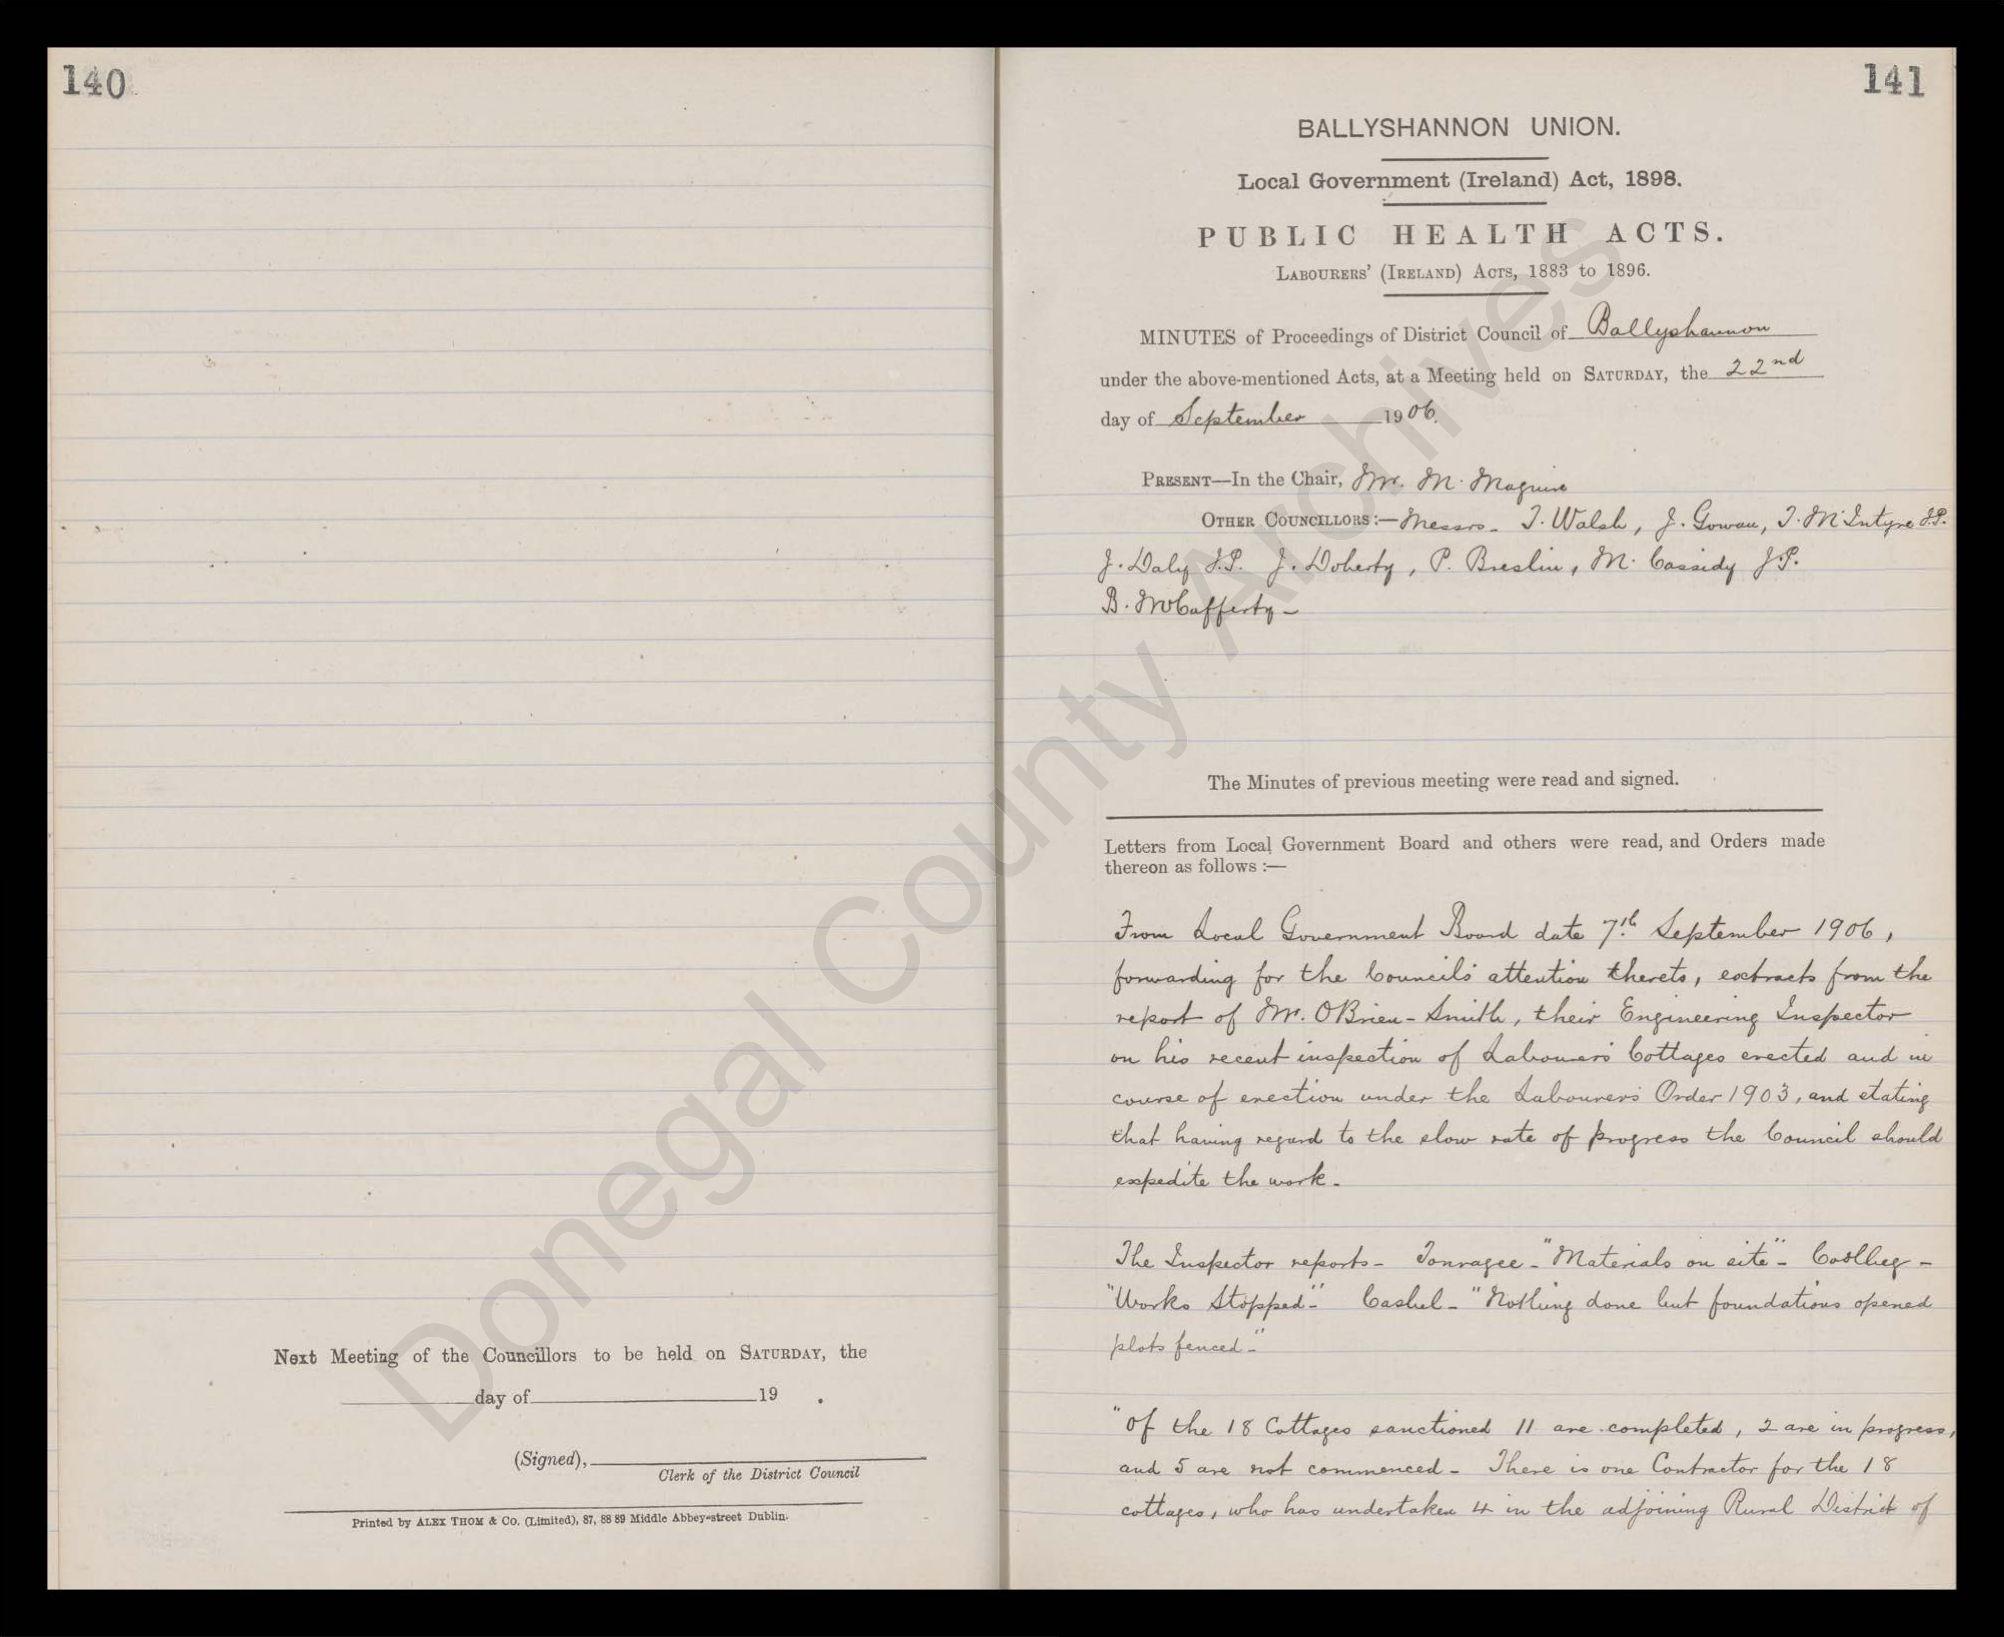 140
Next Meeting of the Councillors to be held on SATURDAY, the
day of 19 .
(Signed),
Clerk of the District Council
Printed by ALEX THOM & Co. (Limited), 87, 88 89 Middle Abbey-street Dublin.
141
BALLYSHANNON UNION.
Local Government (Ireland) Act, 1898.
PUBLIC HEALTH ACTS.
LABOURERS' (IRELAND) ACTS, 1883 to 1896.
MINUTES of Proceedings of District Council of Ballyshannon
under the above-mentioned Acts, at a Meeting held on SATURDAY, the 22nd
day of September 1906.
PRESENT—In the Chair, Mr. M. Maguire
OTHER COUNCILLORS:—Messrs. T. Walsh, J. Gowan, T. McIntyre J.P.
J. Daly J.P. J. Doherty, P. Breslin, M. Cassidy J.P.
B. McCafferty—
The Minutes of previous meeting were read and signed.
Letters from Local Government Board and others were read, and Orders made
thereon as follows :—
From Local Government Board date 7th September 1906,
forwarding for the Council's attention thereto, extracts from the
report of Mr. OBrien-Smith, their Engineering Inspector
on his recent inspection of Labourers' Cottages erected and in
course of erection under the Labourers' Order 1903, and stating
that having regard to the slow rate of progress the Council should
expedite the work.
The Inspector reports- Tonragee-"Materials on site"- Coolbeg-
"Works Stopped-" Cashel-"Nothing done but foundations opened
plots fenced-"
"Of the 18 Cottages sanctioned 11 are completed, 2 are in progress,
and 5 are not commenced- There is one Contractor for the 18
cottages, who has undertaken 4 in the adjoining Rural District of
Donegal County Archives